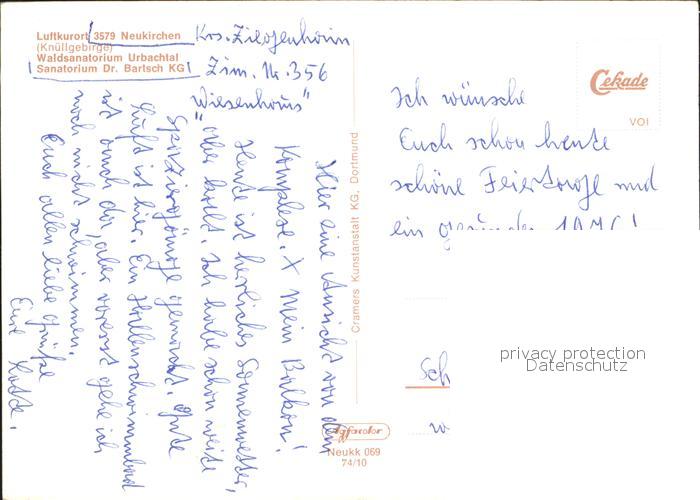 Luftkurort 3579 Neukirchen
(Knüllgebirge)
Waldsanatorium Urbachtal
Sanatorium Dr. Bartsch KG
Krs. Ziegenhain
Zim. Nr. 356
"Wiesenhaus"
Hier eine Ansicht von dem
Komplexe. X Mein Balkon!
Heute ist herrliches Sonnenwetter,
aber kalt. Ich habe schon weite
Spaziergänge gemacht. Gute
Luft ist hier. Ein Hallenschwimmbad
ist auch da, aber vorerst gehe ich
noch nicht schwimmen.
Euch allen liebe Grüße
Eure
Cramers Kunstanstalt KG. Dortmund
Agfacolor
Neukk 069
74/10
Cekade
VOI
Ich wünsche
Euch schon heute
schöne Feiertage und
ein 1976!
Sch
w
privacy protection
Datenschutz